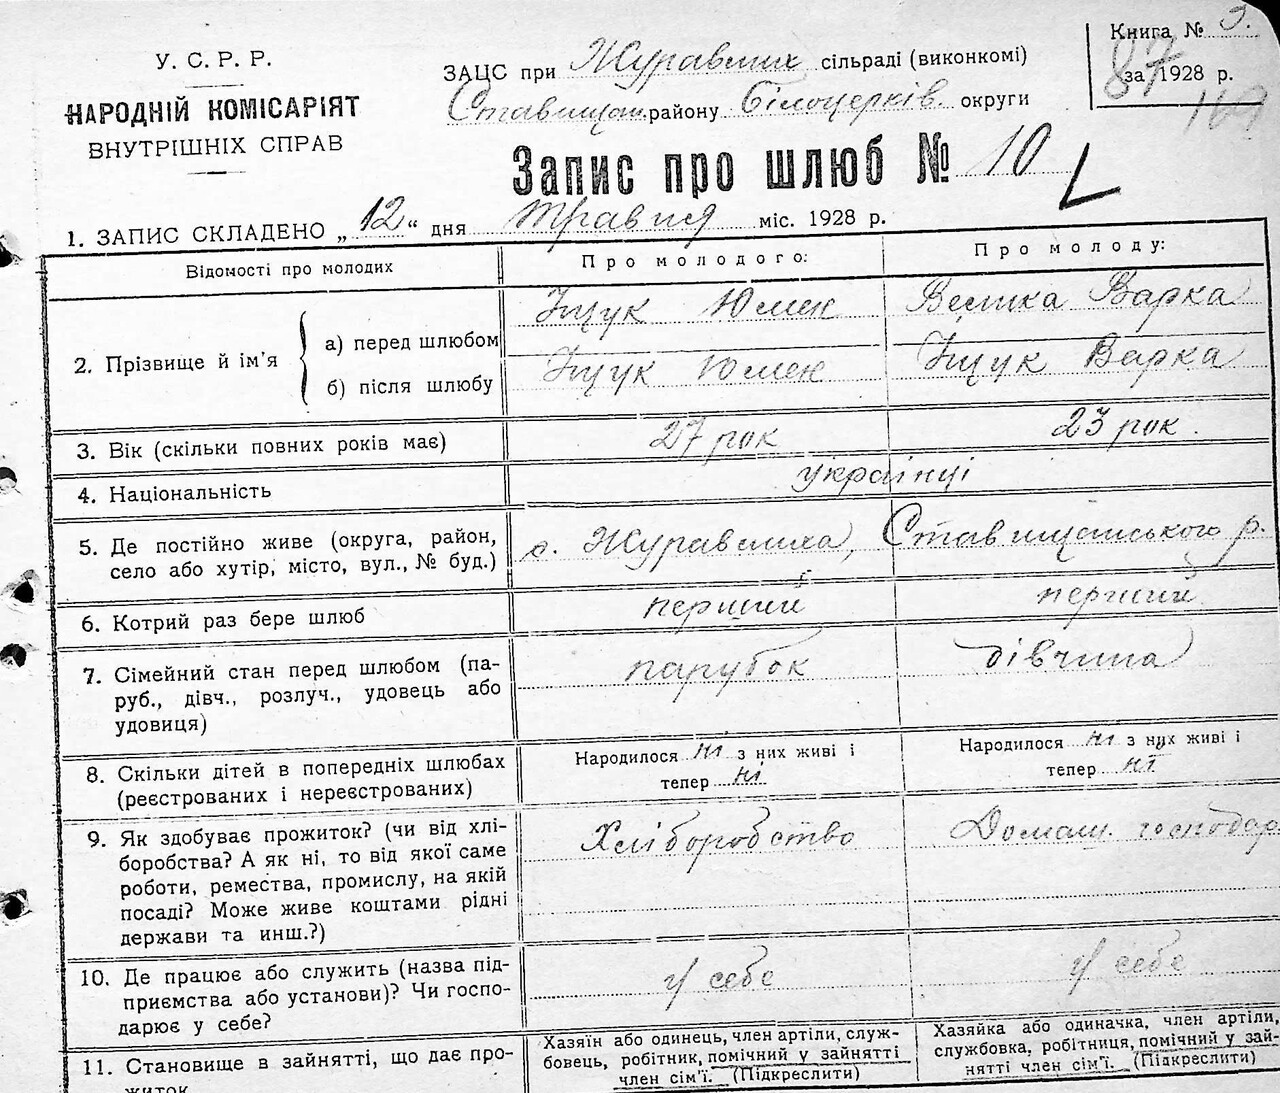 У. С. Р. Р.
НАРОДНІЙ КОМІСАРІЯТ
ВНУТРІШНІХ СПРАВ
ЗАЦС при Журавлих сільраді (виконкомі)
Ставищан. району Білоцерків. округи
Книга № 3.
за 1928 р.
87
169
Запис про шлюб № 10
1. ЗАПИС СКЛАДЕНО „12“ дня травня міс. 1928 р.
Відомості про молодих
Про молодого:
Про молоду:
2. Прізвище й ім’я
а) перед шлюбом
Іщук Юмен
Велика Варка
б) після шлюбу
Іщук Юмен
Іщук Варка
3. Вік (скільки повних років має)
27 рок
23 рок.
4. Національність
українці
5. Де постійно живе (округа, район,
село або хутір, місто, вул., № буд.)
с. Журавлиха, Ставищанського р.
6. Котрий раз бере шлюб
перший
перший
7. Сімейний стан перед шлюбом (па-
руб., дівч., розлуч., удовець або
удовиця)
парубок
дівчина
8. Скільки дітей в попередніх шлюбах
(реєстрованих і нереєстрованих)
Народилося ні з них живі і
тепер ні
Народилося ні з них живі і
тепер ні
9. Як здобуває прожиток? (чи від хлі-
боробства? А як ні, то від якої саме
роботи, ремества, промислу, на якій
посаді? Може живе коштами рідні
держави та инш.?)
Хліборобство
Домаш. господар
10. Де працює або служить (назва під-
приємства або установи)? Чи госпо-
дарює у себе?
у себе
у себе
11. Становище в зайнятті, що дає про-
житок
Хазяїн або одинець, член артіли, служ-
бовець, робітник, помічний у зайнятті
член сім’ї. (Підкреслити)
Хазяйка або одиначка, член артіли,
службовка, робітниця, помічний у зай-
нятті член сім’ї. (Підкреслити)